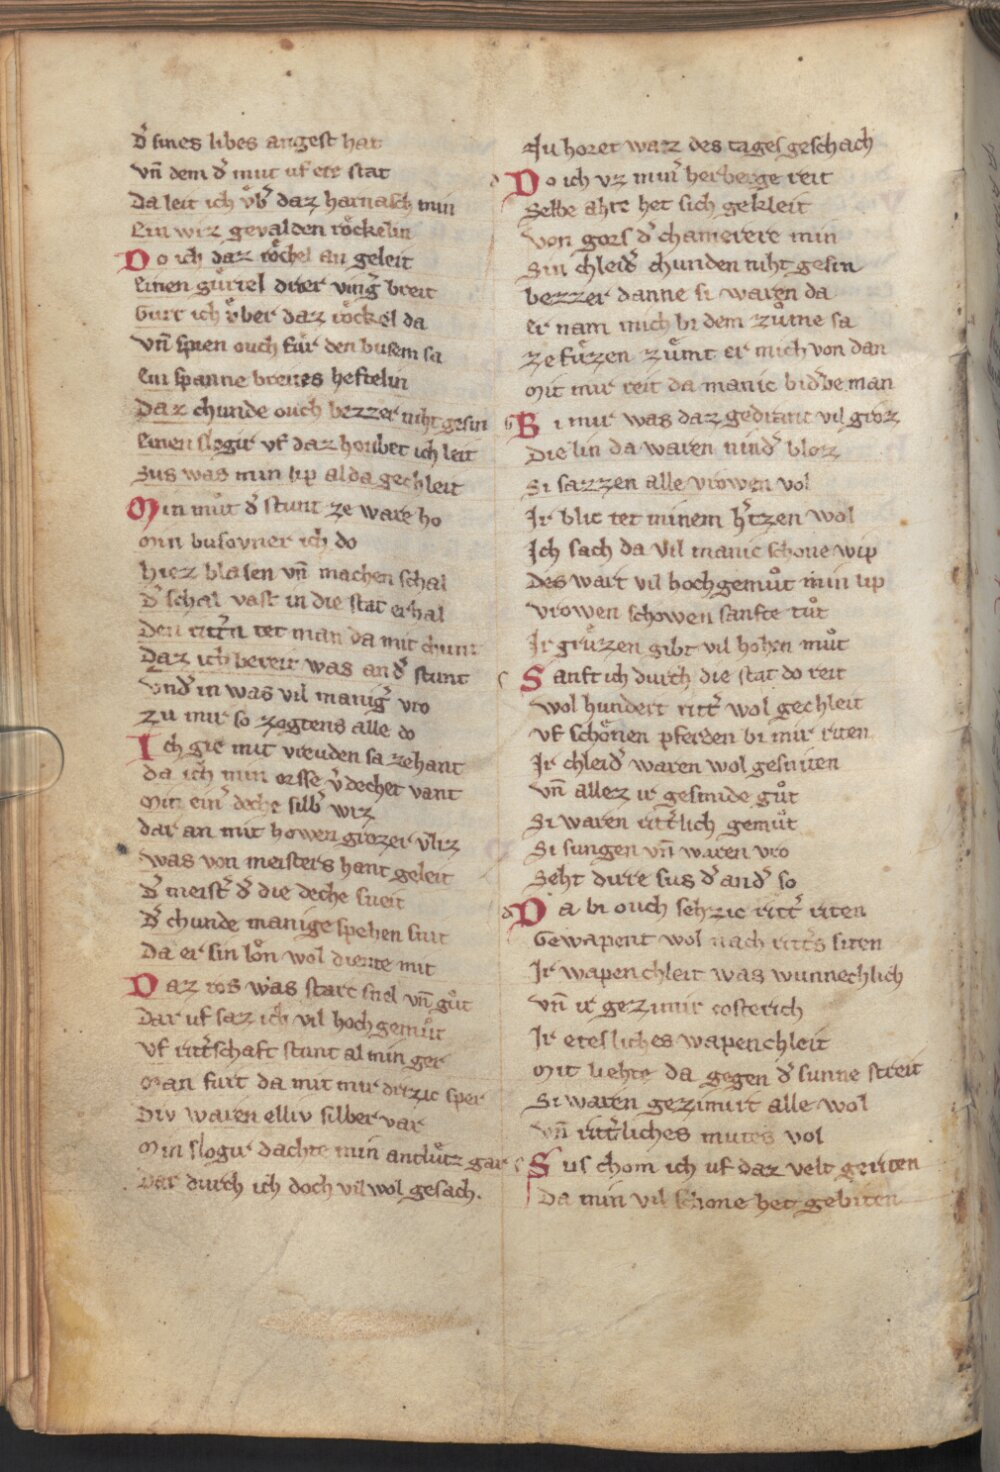 D̾ sines libes angest hat
Vn̄ dem d̾ mut uf ere stat
Da leit ich v̊b̾ daz harnasch min
Ein wiz gevalden ro̊ckelin
Do ich daz ro̊chel an geleit
Einen gu̇rtel drier ving̾ breit
Gurt ich v̊ber daz rockel da
Vn̄ spien ouch fu̇r den busem sa
Ein spanne breites heftelin
Daz chunde ouch bezzer niht gesin
Einen slogir vf daz houbet ich leit
Sus was min lip alda gechleit
Min mu̇t d̾ stunt ze ware ho
Min busovner ich do
Hiez blasen vn̄ machen schal
D̾ schal vast in die stat erhal
Den ritt̾n tet man da mit chunt
Daz ich bereit was an d̾ stunt
Vnd̾ in was vil manig̾ vro
Zu mir so zogtens alle do
Ich gie mit vreuden sa zehant
da ich min orsse v̾dechet vant
Mit ein̾ deche silb̾ wiz
dar an mit howen grozer vliz
Was von meisters hant geleit
D̾ meist̾ d̾ die deche sneit
D̾ chunde manige spehen snit
Da er sin lo̊n wol diente mit
Daz ros was starc snel vn̄ gůt
Dar uf saz ich vil hoch gemůt
Vf ritt̾schaft stunt al min ger
Man furt da mit mir drizic sper
Div waren elliv silber var
Min slogir dachte min antlůtz gar
Dar durch ich doch vil wol gesach.
Nu horet waz des tages geschach
Do ich vz min̾ herberge reit
Selbe ahte het sich gekleit
Von gors d̾ chamerere min
Sin chleid̾ chunden niht gesin
bezzer danne si waren da
er nam mich bi dem zůme sa
ze fůzen zůmt er mich von dan
Mit mir reit da manic bid̾be man
Bi mir was daz gedranc vil groz
Die lin da waren nind̾ bloz
Si sazzen alle vrowen vol
Ir blic tet minem h̾tzen wol
Ich sach da vil manic schone wip
Des wart vil hochgemůt min lip
Vrowen schowen sanfte tůt
Ir grůzen gibt vil hohen můt
Sanft ich durch die stat do reit
Wol hundert ritt̾ wol gechleit
Vf scho̊nen pferden bi mir riten
Ir chleid̾ waren wol gesniten
Vn̄ allez ir gesmide gůt
Si waren ritt̾lich gemůt
Si sungen vn̄ waren vro
Seht dirre sus d̾ and̾ so
Da bi ouch sehzic ritt̾ riten
Gewapent wol nach ritt̾s siten
Ir wapenchleit was wunnechlich
Vn̄ ir gezimir costerich
Ir etesliches wapenchleit
Mit liehte da gegen d̾ sunne streit
Si waren gezimirt alle wol
Vn̄ ritt̾liches mutes vol
Sus chom ich uf daz velt geriten
Da min vil schone het gebiten